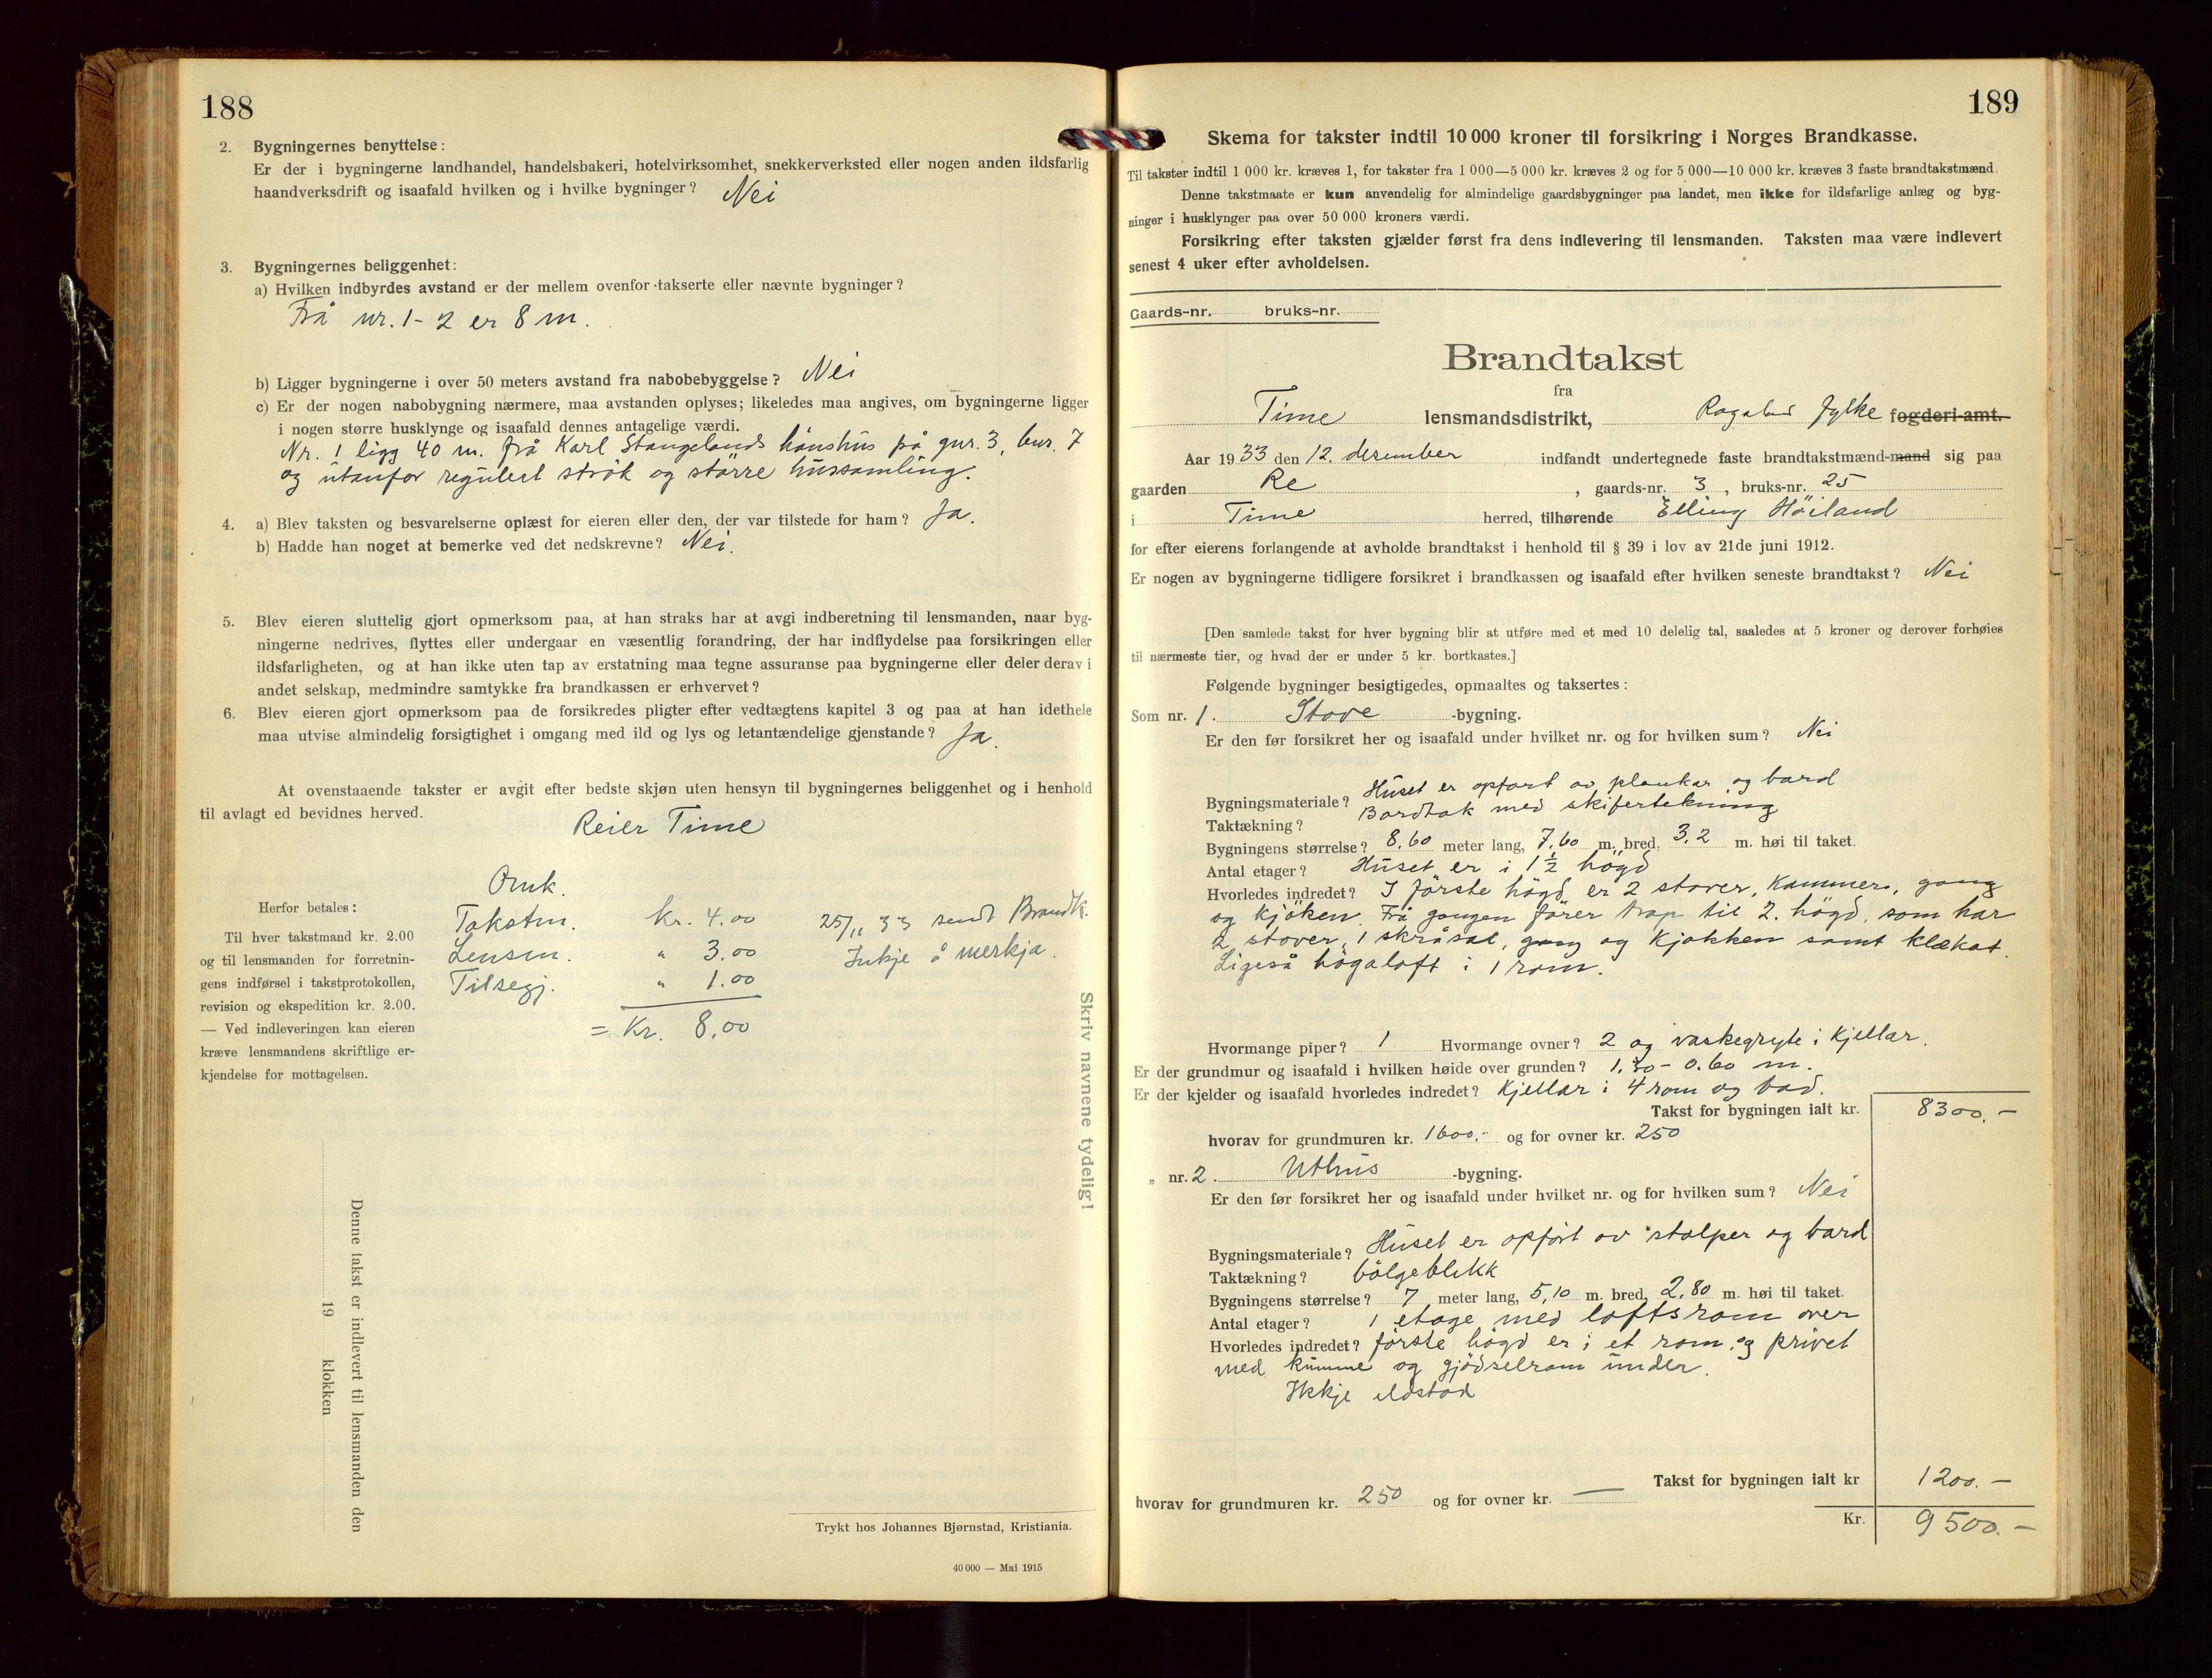 188
2. Bygningernes benyttelse:
Er der i bygningerne landhandel, handelsbakeri, hotelvirksomhet, snekkerverksted eller nogen anden ildsfarlig
haandverksdrift og isaafald hvilken og i hvilke bygninger? Nei
3. Bygningernes beliggenhet:
a) Hvilken indbyrdes avstand er der mellem ovenfor takserte eller nævnte bygninger?
Frå nr. 1 - 2 er 8 m.
b) Ligger bygningerne i over 50 meters avstand fra nabobebyggelse? Nei
c) Er der nogen nabobygning nærmere, maa avstanden oplyses; likeledes maa angives, om bygningerne ligger
i nogen større husklynge og isaafald dennes antagelige værdi.
Nr. 1 ligg 40 m. frå Karl Stangelands hønshus på gnr. 3, bnr. 7
og utanfor regulert strök og större hussamling.
4. a) Blev taksten og besvarelserne oplæst for eieren eller den, der var tilstede for ham? Ja.
b) Hadde han noget at bemerke ved det nedskrevne? Nei.
5. Blev eieren sluttelig gjort opmerksom paa, at han straks har at avgi indberetning til lensmanden, naar byg-
ningerne nedrives, flyttes eller undergaar en væsentlig forandring, der har indflydelse paa forsikringen eller
ildsfarligheten, og at han ikke uten tap av erstatning maa tegne assuranse paa bygningerne eller deler derav i
andet selskap, medmindre samtykke fra brandkassen er erhvervet?
6. Blev eieren gjort opmerksom paa de forsikredes pligter efter vedtægtens kapitel 3 og paa at han idethele
maa utvise almindelig forsigtighet i omgang med ild og lys og letantændelige gjenstande? Ja.
At ovenstaaende takster er avgit efter bedste skjøn uten hensyn til bygningernes beliggenhet og i henhold
til avlagt ed bevidnes herved.
Reier Time
Omk.
Takstm. kr. 4.00
Lensm. " 3.00
Tilsegj. " 1.00
= Kr. 8,00
25/11 33 sendt Brandk.
Inkje å merkja.
Herfor betales:
Til hver takstmand kr. 2.00
og til lensmanden for forretnin-
gens indførsel i takstprotokollen,
revision og ekspedition kr. 2.00.
— Ved indleveringen kan eieren
kræve lensmandens skriftlige er-
kjendelse for mottagelsen.
Skriv navnene tydelig!
Denne takst er indlevert til lensmanden den
19 klokken
Trykt hos Johannes Bjørnstad, Kristiania.
40 000 — Mai 1915
189
Skema for takster indtil 10 000 kroner til forsikring i Norges Brandkasse.
Til takster indtil 1 000 kr. kræves 1, for takster fra 1 000—5 000 kr. kræves 2 og for 5 000—10 000 kr. kræves 3 faste brandtakstmænd.
Denne takstmaate er kun anvendelig for almindelige gaardsbygninger paa landet, men ikke for ildsfarlige anlæg og byg-
ninger i husklynger paa over 50 000 kroners værdi.
Forsikring efter taksten gjælder først fra dens indlevering til lensmanden. Taksten maa være indlevert
senest 4 uker efter avholdelsen.
Gaards-nr. bruks-nr.
Brandtakst
fra
Time lensmandsdistrikt, Rogaland fylke fogderi-amt.
Aar 1933 den 12. desember indfandt undertegnede faste brandtakstmænd-mand sig paa
gaarden Re, gaards-nr. 3, bruks-nr. 25
i Time herred, tilhørende Elling Höiland
for efter eierens forlangende at avholde brandtakst i henhold til § 39 i lov av 21de juni 1912.
Er nogen av bygningerne tidligere forsikret i brandkassen og isaafald efter hvilken seneste brandtakst? Nei
[Den samlede takst for hver bygning blir at utføre med et med 10 delelig tal, saaledes at 5 kroner og derover forhøies
til nærmeste tier, og hvad der er under 5 kr. bortkastes.]
Følgende bygninger besigtigedes, opmaaltes og taksertes:
Som nr. 1. Stove -bygning.
Er den før forsikret her og isaafald under hvilket nr. og for hvilken sum? Nei
Bygningsmateriale? Huset er opført av plankar og bord
Taktækning? Bordtak med skifertekning
Bygningens størrelse? 8,60 meter lang, 7,60 m. bred, 3,2 m. høi til taket.
Antal etager? Huset er i 1½ högd
Hvorledes indredet? I förste högd er 2 stover, Kammers, gang
og kjöken. Frå gangen förer trap til 2. högd, som har
2 stover, 1 skråsal, gang og kjökken samt klekot.
Ligeså högaloft i 1 rom.
Hvormange piper? 1 Hvormange ovner? 2 og vaskegryte i kjellar.
Er der grundmur og isaafald i hvilken høide over grunden? 1,30 - 0.60 m.
Er der kjelder og isaafald hvorledes indredet? Kjellar i 4 rom og bad.
Takst for bygningen ialt kr. 8300.-
hvorav for grundmuren kr. 1600.- og for ovner kr. 250
„ nr. 2. Uthus -bygning.
Er den før forsikret her og isaafald under hvilket nr. og for hvilken sum? Nei
Bygningsmateriale? Huset er opfört av stolper og bord
Taktækning? bölgeblikk
Bygningens størrelse? 7 meter lang, 5,10 m. bred, 2,80 m. høi til taket.
Antal etager? 1 etage med loftsrom over
Hvorledes indredet? förste högd er i et rom og privet
med kumme og gjödselrom under.
Ikkje eldstad
Takst for bygningen ialt kr 1200.-
hvorav for grundmuren kr. 250 og for ovner kr. —
Kr. 9500.-